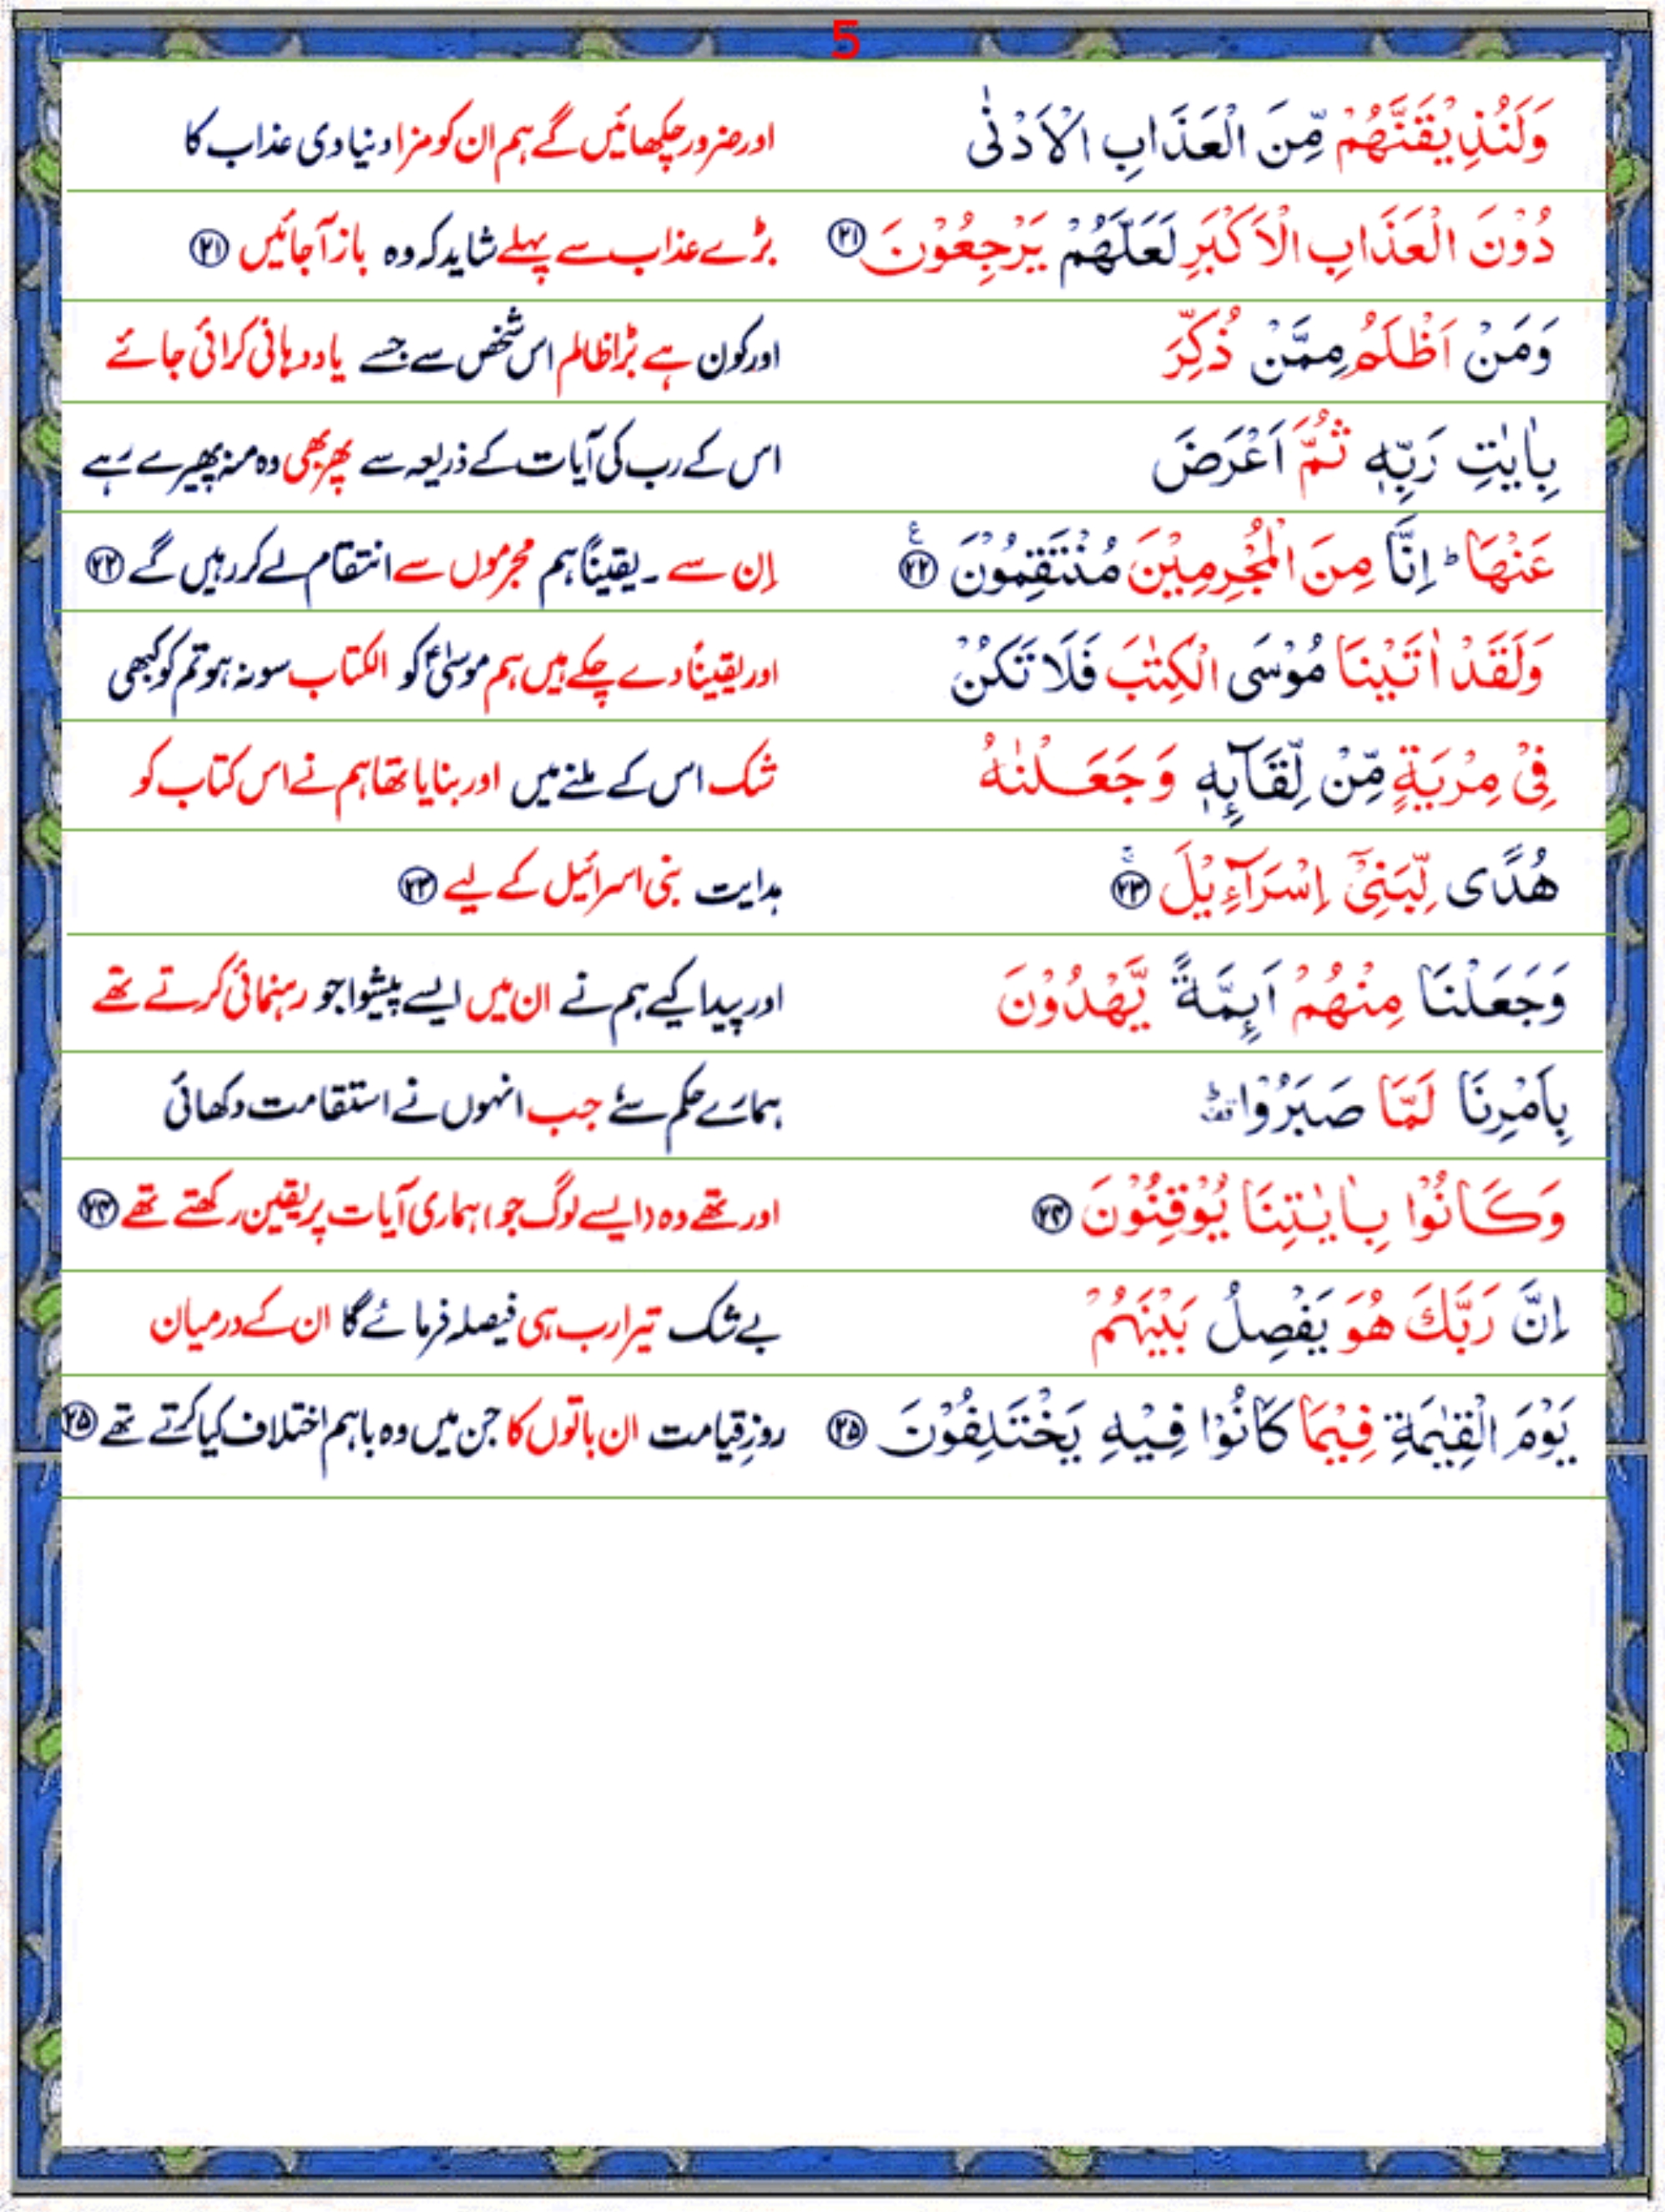 5
وَلَنُذِيْقَنَّهُمْ مِّنَ الْعَذَابِ الْاَدْنٰى اور ضرور چکھائیں گے ہم ان کو مزا دنیاوی عذاب کا
دُوْنَ الْعَذَابِ الْاَكْبَرِ لَعَلَّهُمْ يَرْجِعُوْنَ ۲۱ بڑے عذاب سے پہلے شاید کہ وہ باز آ جائیں ۲۱
وَمَنْ اَظْلَمُ مِمَّنْ ذُكِّرَ اور کون ہے بڑا ظالم اس شخص سے جسے یاد دہانی کرائی جائے
بِاٰيٰتِ رَبِّهٖ ثُمَّ اَعْرَضَ اس کے رب کی آیات کے ذریعہ سے پھر بھی وہ منہ پھیرے رہے
عَنْهَا ؕ اِنَّا مِنَ الْمُجْرِمِيْنَ مُنْتَقِمُوْنَ ۲۲ ع اِن سے ۔ یقیناً ہم مجرموں سے انتقام لے کر رہیں گے ۲۲
وَلَقَدْ اٰتَيْنَا مُوْسَى الْكِتٰبَ فَلَا تَكُنْ اور یقیناً دے چکے ہیں ہم موسیٰؑ کو الکتاب سو نہ ہو تم کو کبھی
فِيْ مِرْيَةٍ مِّنْ لِّقَآئِهٖ وَجَعَلْنٰهُ شک اس کے ملنے میں اور بنایا تھا ہم نے اس کتاب کو
هُدًى لِّبَنِيْٓ اِسْرَآءِيْلَ ۲۳ ہدایت بنی اسرائیل کے لیے ۲۳
وَجَعَلْنَا مِنْهُمْ اَئِمَّةً يَّهْدُوْنَ اور پیدا کیے ہم نے ان میں ایسے پیشوا جو رہنمائی کرتے تھے
بِاَمْرِنَا لَمَّا صَبَرُوْا ہمارے حکم سے جب انہوں نے استقامت دکھائی
وَكَانُوْا بِاٰيٰتِنَا يُوْقِنُوْنَ ۲۴ اور تھے وہ (ایسے لوگ جو) ہماری آیات پر یقین رکھتے تھے ۲۴
اِنَّ رَبَّكَ هُوَ يَفْصِلُ بَيْنَهُمْ بے شک تیرا رب ہی فیصلہ فرمائے گا ان کے درمیان
يَوْمَ الْقِيٰمَةِ فِيْمَا كَانُوْا فِيْهِ يَخْتَلِفُوْنَ ۲۵ روزِ قیامت ان باتوں کا جن میں وہ باہم اختلاف کیا کرتے تھے ۲۵